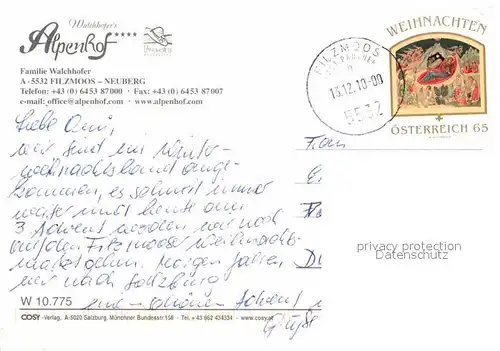 Walchhofer's
Alpenhof ****
Familie Walchhofer
A - 5532 FILZMOOS – NEUBERG
Telefon: +43 (0) 6453 87000 · Fax: +43 (0) 6453 87007
e-mail: office@alpenhof.com · www.alpenhof.com
WEIHNACHTEN
FILZMOOS
13.12.10-00
5532
ÖSTERREICH 65
Liebe Omi,
wir sind im Winter-
weihnachtsland ange-
kommen, es schneit immer
weiter und heute am
3 Advent werden wir noch
auf den Filzmooser Weihnachts-
markt gehen. Morgen fahren
wir nach Salzburg
einen schönen Advent
Grüße
Frau
privacy protection
Datenschutz
W 10.775
COSY -Verlag, A-5020 Salzburg, Münchner Bundesstr. 156 · Tel. + 43 662 434334 · www.cosy.at